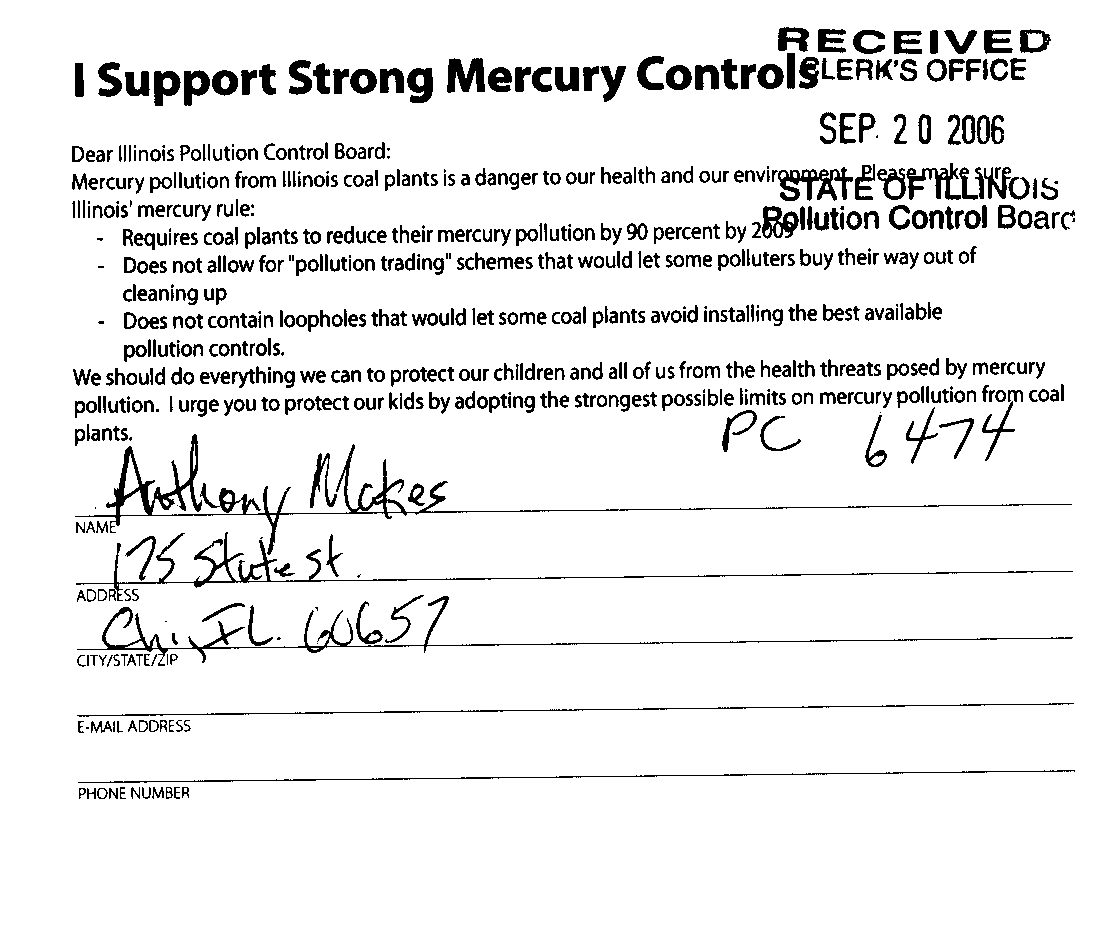 RECEIVED
CLERK'S OFFICE
I Support Strong Mercury Controls
SEP. 20 2006
Dear Illinois Pollution Control Board:
Mercury pollution from Illinois coal plants is a danger to our health and our environment. Please make sure
STATE OF ILLINOIS
Illinois' mercury rule:
Pollution Control Board
- Requires coal plants to reduce their mercury pollution by 90 percent by 2009
- Does not allow for "pollution trading" schemes that would let some polluters buy their way out of
cleaning up
- Does not contain loopholes that would let some coal plants avoid installing the best available
pollution controls.
We should do everything we can to protect our children and all of us from the health threats posed by mercury
pollution. I urge you to protect our kids by adopting the strongest possible limits on mercury pollution from coal
plants.
PC 6474
Anthony Makes
NAME
175 State st.
ADDRESS
Chi, IL. 60657
CITY/STATE/ZIP
E-MAIL ADDRESS
PHONE NUMBER